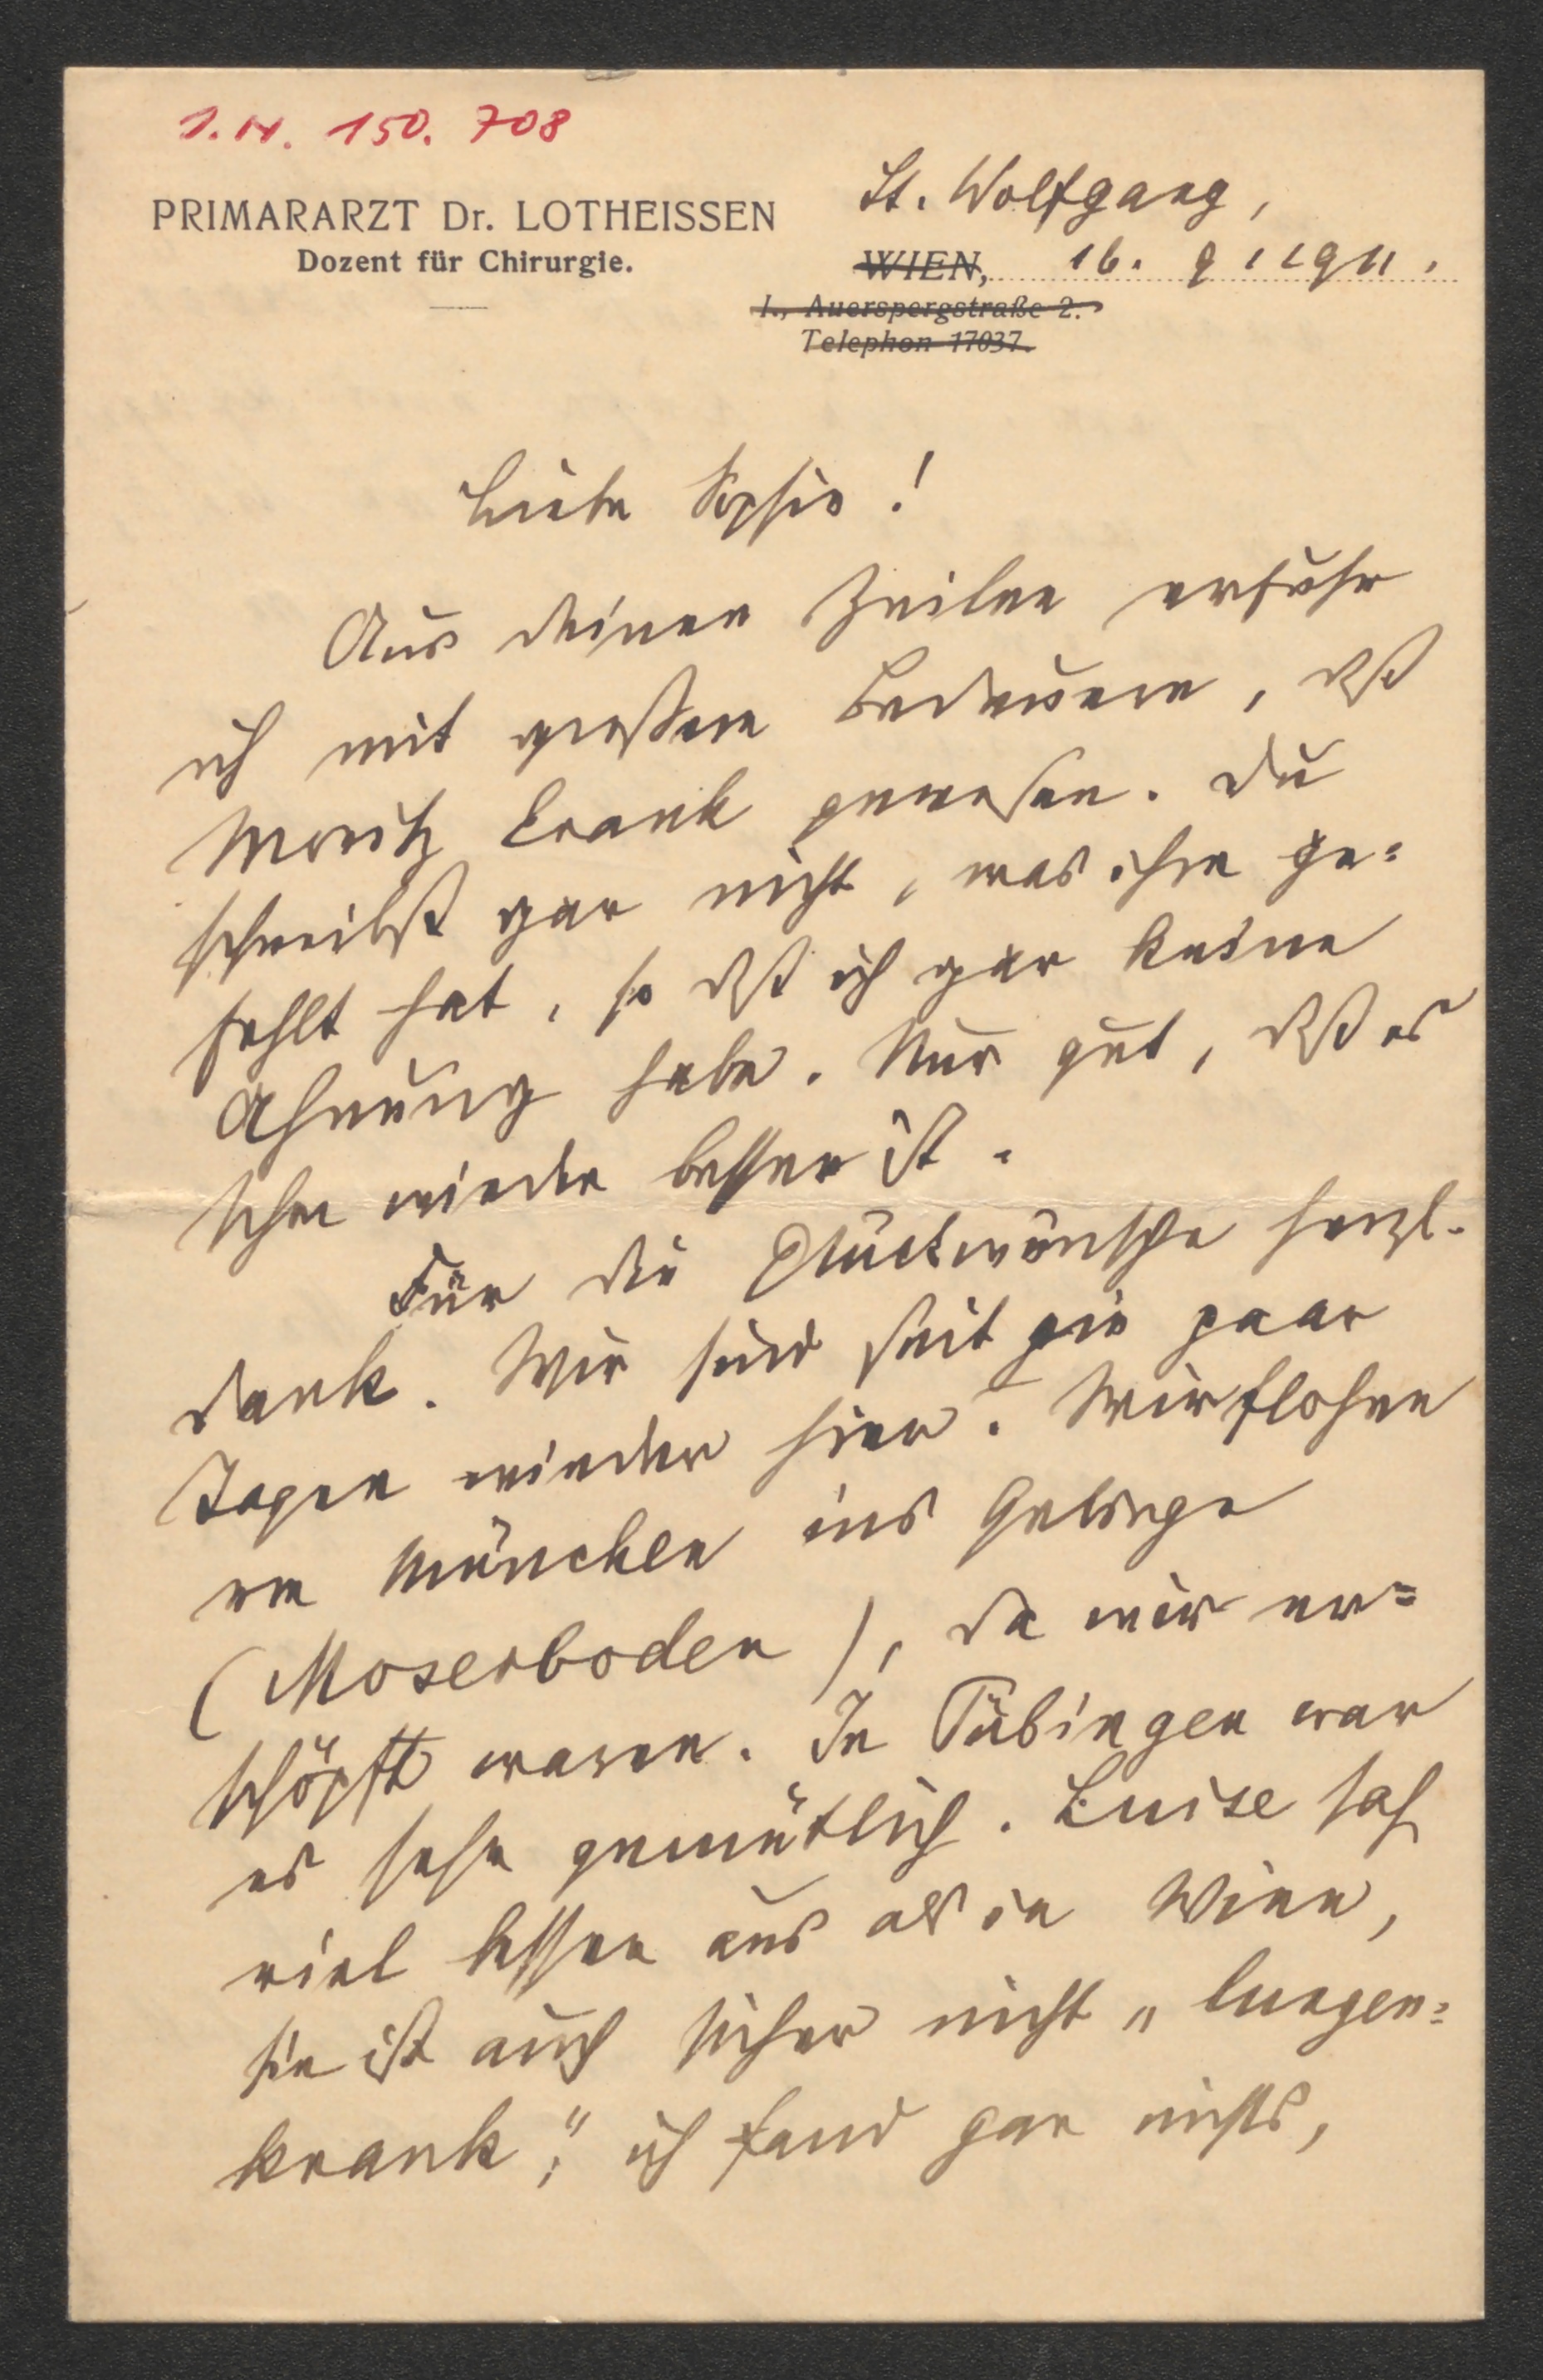 I.N. 150.708
PRIMARARZT Dr. LOTHEISSEN
Dozent für Chirurgie.
St. Wolfgang,
WIEN, 16. 9 1911.
I., Auerspergstraße 2.
Telephon 17037.
Liebe Sophie!
Aus deinen Zeilen erfuhr
ich mit großem Bedauern, dß
Moritz krank gewesen. Du
schreibst gar nicht, was ihm ge=
fehlt hat, so dß ich gar keine
Ahnung habe. Nur gut, dß es
schon wieder besser ist.
Für die Glückwünsche herzl.
Dank. Wir sind seit ein paar
Tagen wieder hier. Wir flohen
von München ins Gebirge
(Moserboden), da wir er=
schöpft waren. In Tübingen war
es sehr gemütlich. Luise sah
viel besser aus als in Wien,
sie ist auch sicher nicht „lungen=
krank;" ich fand gar nichts,